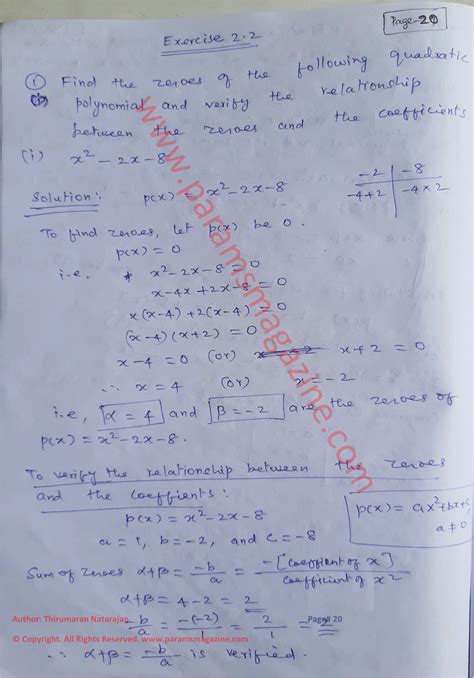 Page-20
Exercise 2.2
① Find the zeroes of the following quadratic
polynomial and verify the relationship
between the zeroes and the coefficients
(i) x² - 2x - 8
Solution: p(x) = x² - 2x - 8
-2 | -8
-4+2 | -4×2
To find zeroes, let p(x) be 0.
p(x) = 0
i.e. x² - 2x - 8 = 0
x - 4x + 2x - 8 = 0
x(x-4) + 2(x-4) = 0
(x-4)(x+2) = 0
x - 4 = 0 (or) x + 2 = 0
∴ x = 4 (or) x = -2
i.e, α = 4 and β = -2 are the zeroes of
p(x) = x² - 2x - 8.
To verify the relationship between the zeroes
and the coeffients:
p(x) = x² - 2x - 8
a = 1, b = -2, and c = -8
p(x) = ax² + bx + c
a ≠ 0
Sum of zeroes α+β = -b/a = -[coeffient of x]/coefficient of x2
α+β = 4 - 2 = 2
-b/a = -(-2)/1 = 2/1 = 2
∴ α+β = -b/a is verified.
www.paramsmagazine.com
Author: Thirumaran Natarajan
Page# 20
© Copyright. All Rights Reserved: www.paramsmagazine.com